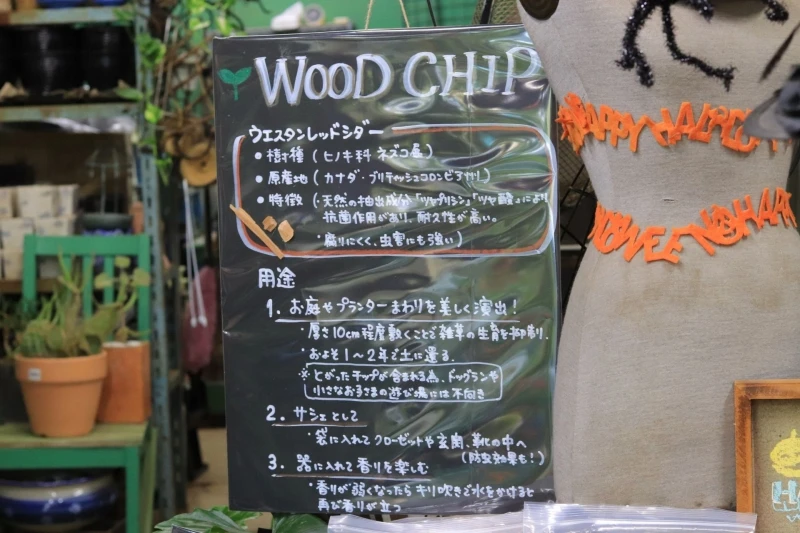 WOOD CHIP
ウエスタンレッドシダー
• 樹種 (ヒノキ科 ネズコ属)
• 原産地 (カナダ・ブリティッシュコロンビア州)
• 特徴 (・天然の抽出成分「ツップリシン」「ツヤ酸」により
抗菌作用があり、耐久性が高い。
・腐りにくく、虫害にも強い)
用途
1. お庭やプランターまわりを美しく演出!
・厚さ10cm程度敷くことで雑草の生育を抑制。
・およそ1〜2年で土に還る.
※とがったチップが含まれる為、ドッグランや
小さなお子さまの遊び場には不向き
2. サシェとして
・袋に入れてクローゼットや玄関、靴の中へ
(防虫効果も!)
3. 器に入れて香りを楽しむ
・香りが弱くなったら キリ吹きで水をかけると
再び香りが立つ
HAPPY HALLO
OWEEN HAPP